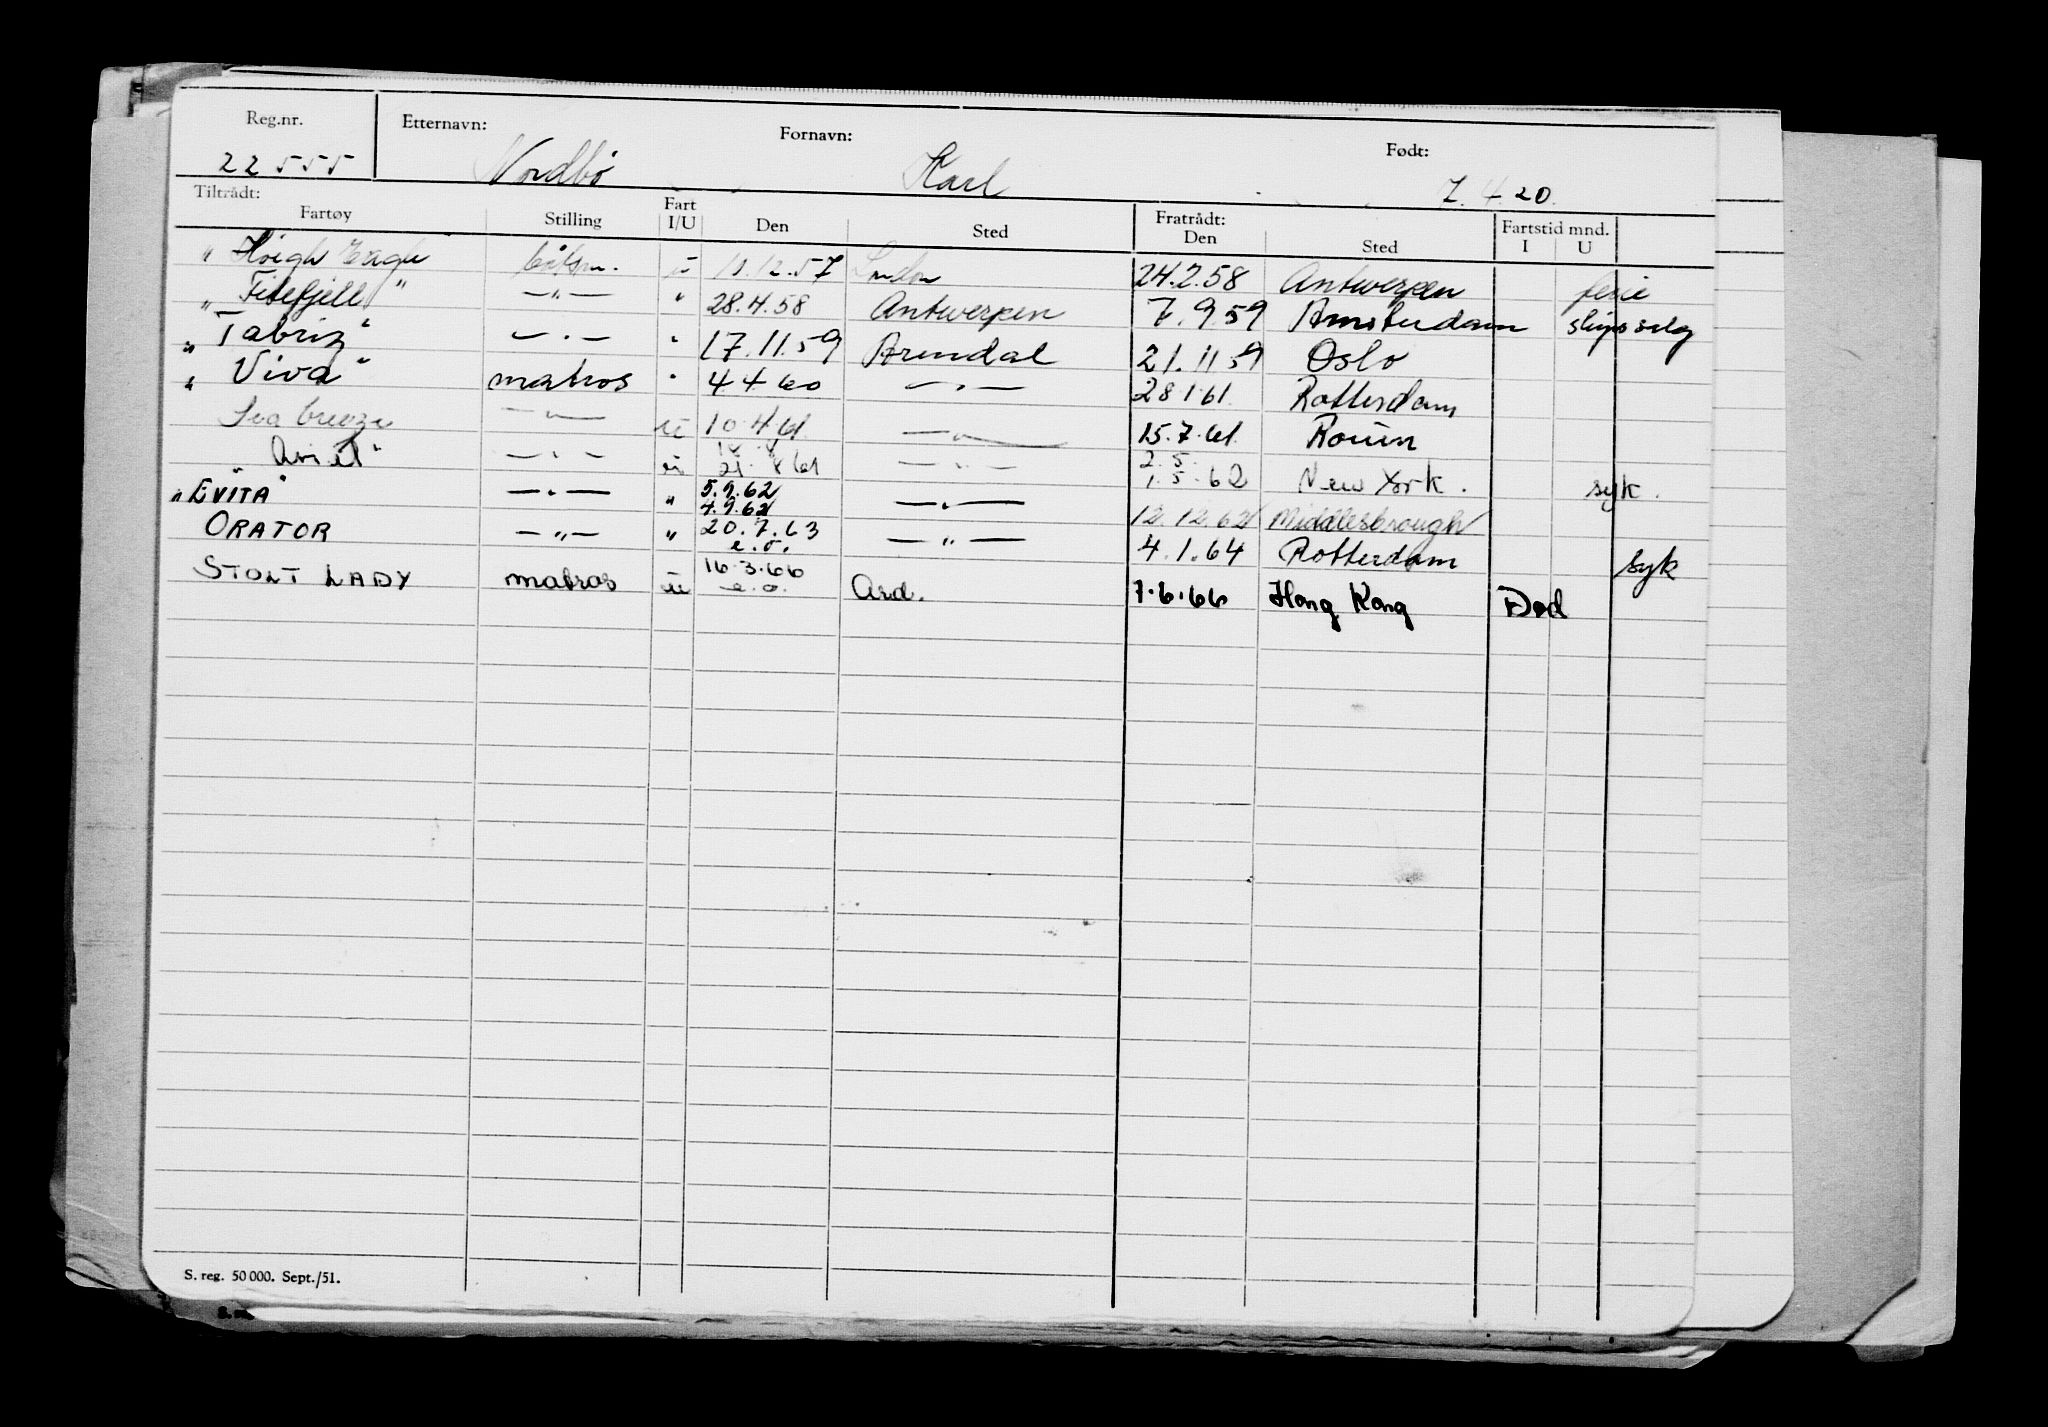 Reg.nr. Etternavn: Fornavn: Født:
22555 Nordbö Karl 7.4.20.
Tiltrådt: Fart Fratrådt: Fartstid mnd.
Fartøy Stilling I/U Den Sted Den Sted I U
" Höegh Eagle båtsm. u 11.12.57 London 24.2.58 Antwerpen ferie
" Filefjell " — " — " 28.4.58 Antwerpen 7.9.59 Amsterdam skipssalg
" Tabriz " — " — " 17.11.59 Arendal 21.11.59 Oslo
" Viva " matros " 4.4.60 — " — 28.1.61. Rotterdam
Sea breeze — " — u 10.4.61. — " — 15.7.61. Rouen
Ariel " — " — u 21.8.61 — " — 2.5. 1.5.62 New York. syk.
" EVITA " — " — " 5.9.62 4.9.62 — " — 12.12.62 Middlesbrough
ORATOR — " — " 20.7.63 e.o. — " — 4.1.64 Rotterdam syk
STOLT LADY matros u 16.3.66 e.o. Ard. 7.6.66 Hong Kong Død
S. reg. 50 000. Sept./51.